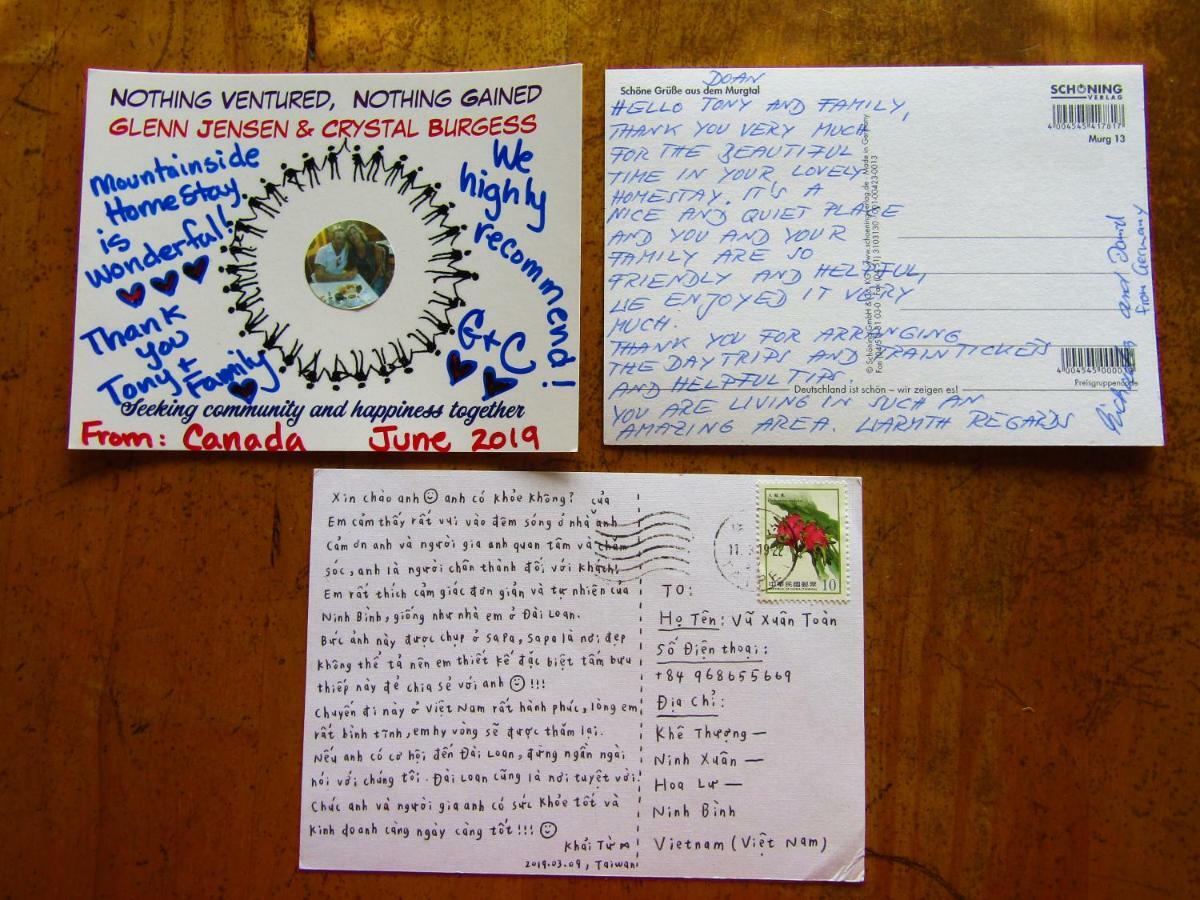 NOTHING VENTURED, NOTHING GAINED
GLENN JENSEN & CRYSTAL BURGESS
Mountainside
Home Stay
is
wonderful!
Thank
you
Tony +
Family
We
highly
recommend!
G+C
Seeking community and happiness together
From: Canada June 2019
Schöne Grüße aus dem Murgtal
DOAN
HELLO TONY AND FAMILY,
THANK YOU VERY MUCH
FOR THE BEAUTIFUL
TIME IN YOUR LOVELY
HOMESTAY. IT'S A
NICE AND QUIET PLACE
AND YOU AND YOUR
FAMILY ARE SO
FRIENDLY AND HELPFUL,
WE ENJOYED IT VERY
MUCH.
THANK YOU FOR ARRANGING
THE DAYTRIPS AND TRAINTICKETS
AND HELPFUL TIPS.
YOU ARE LIVING IN SUCH AN
AMAZING AREA. WARMTH REGARDS
and David
from Germany
SCHÖNING
VERLAG
4 004545 417817
Murg 13
Made in Germany
Deutschland ist schön – wir zeigen es!
Xin chào anh anh có khỏe không? của
Em cảm thấy rất vui vào đêm sóng ở nhà anh
Cảm ơn anh và người gia anh quan tâm và chăm
sóc, anh là người chân thành đối với khách!
Em rất thích cảm giác đơn giản và tự nhiên của
Ninh Bình, giống như nhà em ở Đài Loan.
Bức ảnh này được chụp ở sapa, sapa là nơi đẹp
không thể tả nên em thiết kế đặc biệt tấm bưu
thiếp này để chia sẻ với anh !!!
Chuyến đi này ở Việt Nam rất hành phúc, lòng em
rất bình tĩnh, em hy vòng sẽ được thăm lại.
Nếu anh có cơ hội đến Đài Loan, đừng ngần ngài
nói với chúng tôi. Đài Loan cũng là nơi tuyệt vời!
Chúc anh và người gia anh có sức khỏe tốt và
kinh doanh càng ngày càng tốt!!!
Khải Từ
2019.03.09, Taiwan
中華民國郵票
10
TO:
Họ Tên: Vũ Xuân Toàn
Số Điện thoại:
+84 968655669
Địa chỉ:
Khê Thượng —
Ninh Xuân —
Hoa Lư —
Ninh Bình
Vietnam (Việt Nam)